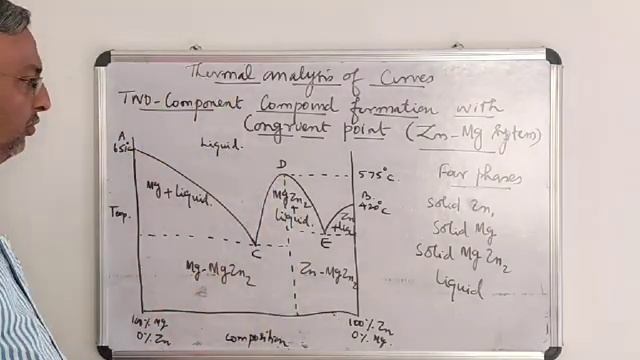 Thermal analysis of Curves
Two-Component Compound formation with
Congruent point (Zn-Mg System)
A
651°C
Liquid.
D
575°C
Four phases
Mg + Liquid.
MgZn2
+
Liquid.
B
420°C
Zn
+ Liq
Solid Zn,
Solid Mg
Solid MgZn2
Liquid
Temp.
C
E
Mg-MgZn2
Zn-MgZn2
100% Mg
0% Zn
composition
100% Zn
0% Mg